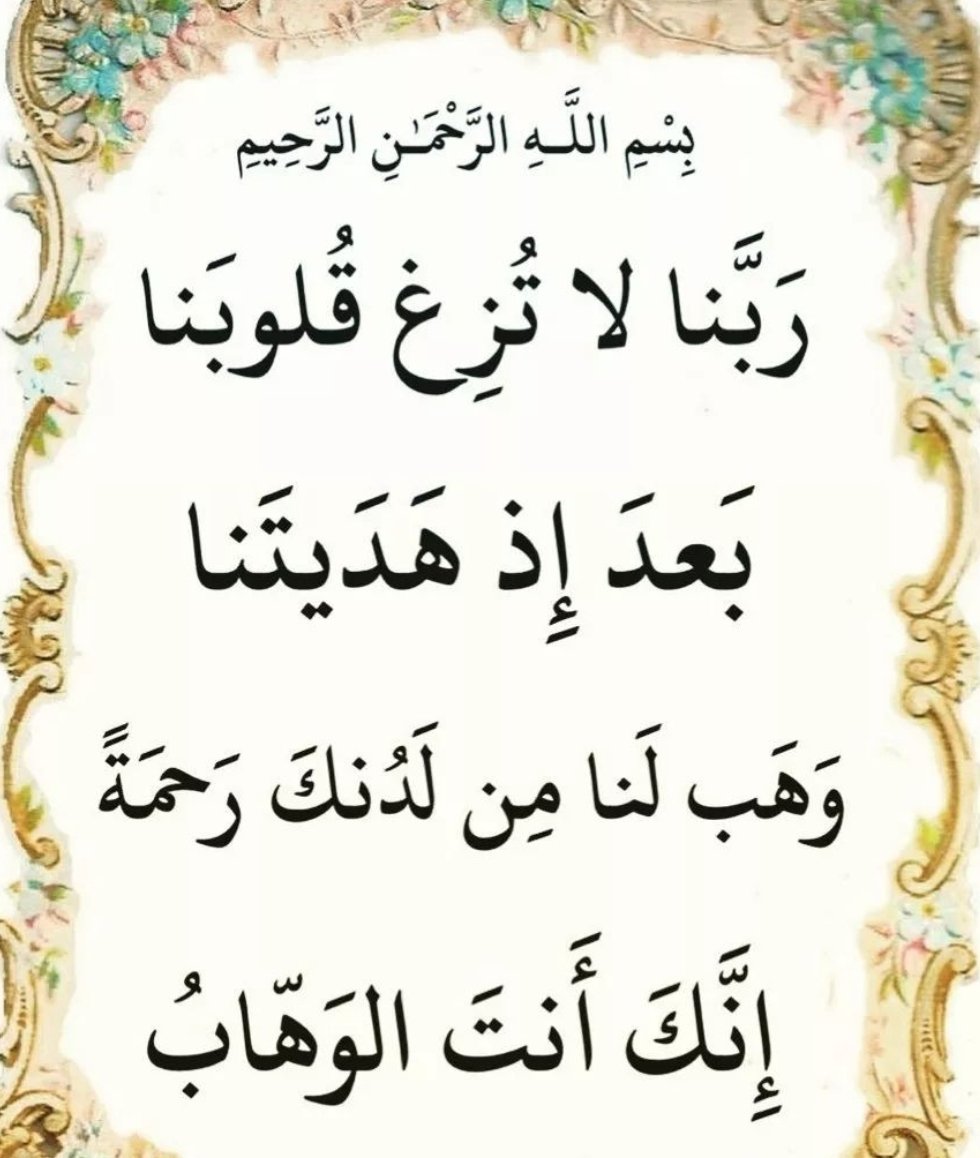 بِسْمِ اللَّـهِ الرَّحْمَـٰنِ الرَّحِيمِ
رَبَّنا لا تُزِغ قُلوبَنا
بَعدَ إِذ هَدَيتَنا
وَهَب لَنا مِن لَدُنكَ رَحمَةً
إِنَّكَ أَنتَ الوَهّابُ